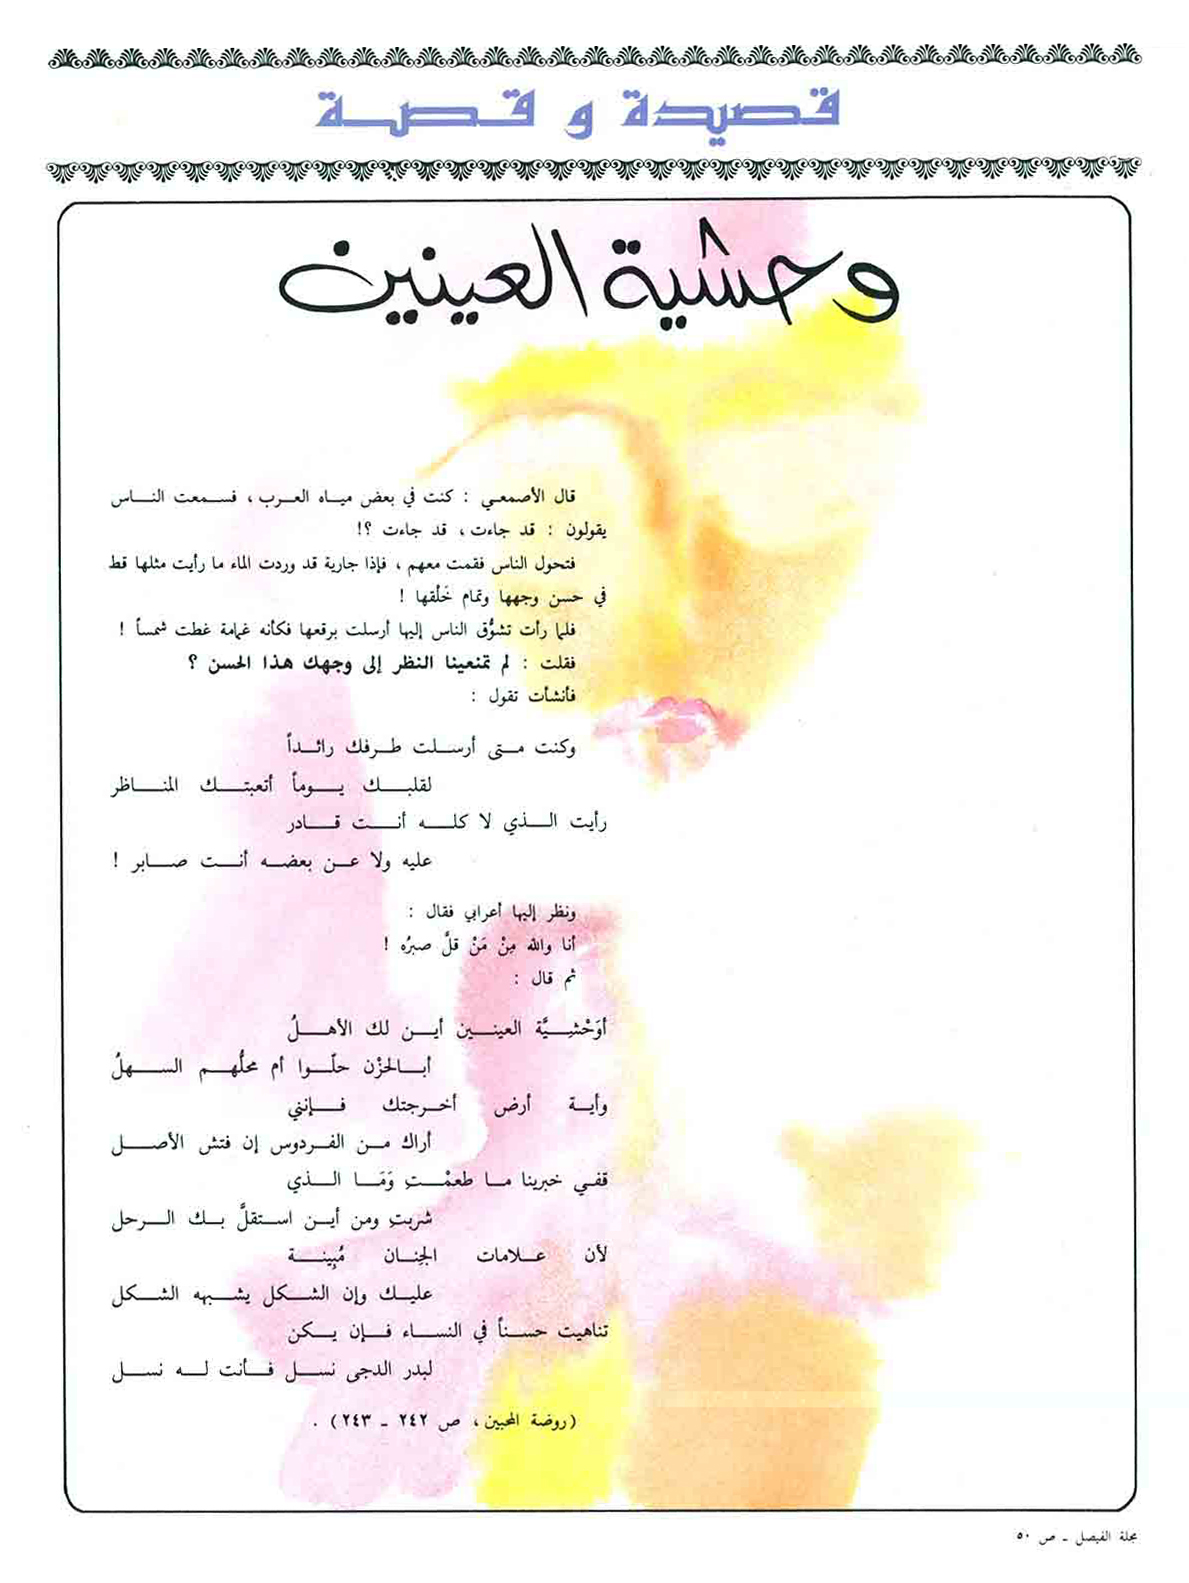 قصيدة و قصة
وحشية العينين
قال الأصمعي : كنت في بعض مياه العرب ، فسمعت الناس
يقولون : قد جاءت ، قد جاءت ؟!
فتحول الناس فقمت معهم ، فإذا جارية قد وردت الماء ما رأيت مثلها قط
في حسن وجهها وتمام خَلْقها !
فلما رأت تشوُّق الناس إليها أرسلت برقعها فكأنه غمامة غطت شمساً !
فقلت : لم تمنعينا النظر إلى وجهك هذا الحسن ؟
فأنشأت تقول :
وكنت متى أرسلت طرفك رائداً
لقلبك يوماً أتعبتك المناظر
رأيت الذي لا كله أنت قادر
عليه ولا عن بعضه أنت صابر !
ونظر إليها أعرابي فقال :
أنا والله مِنْ مَنْ قلَّ صبرُه !
ثم قال :
أوَحْشِيَّة العينين أين لك الأهلُ
أبالحَزْن حلّوا أم محلُّهم السهلُ
وأية أرض أخرجتك فإنني
أراك من الفردوس إن فتش الأصل
قفي خبرينا ما طعمْتِ وَمَا الذي
شربتِ ومن أين استقلَّ بك الرحل
لأن علامات الجِنان مُبِينة
عليك وإن الشكل يشبهه الشكل
تناهيت حسناً في النساء فإن يكن
لبدر الدجى نسل فأنت له نسل
(روضة المحبين، ص ٢٤٢ ـ ٢٤٣) .
مجلة الفيصل ـ ص ٥٠